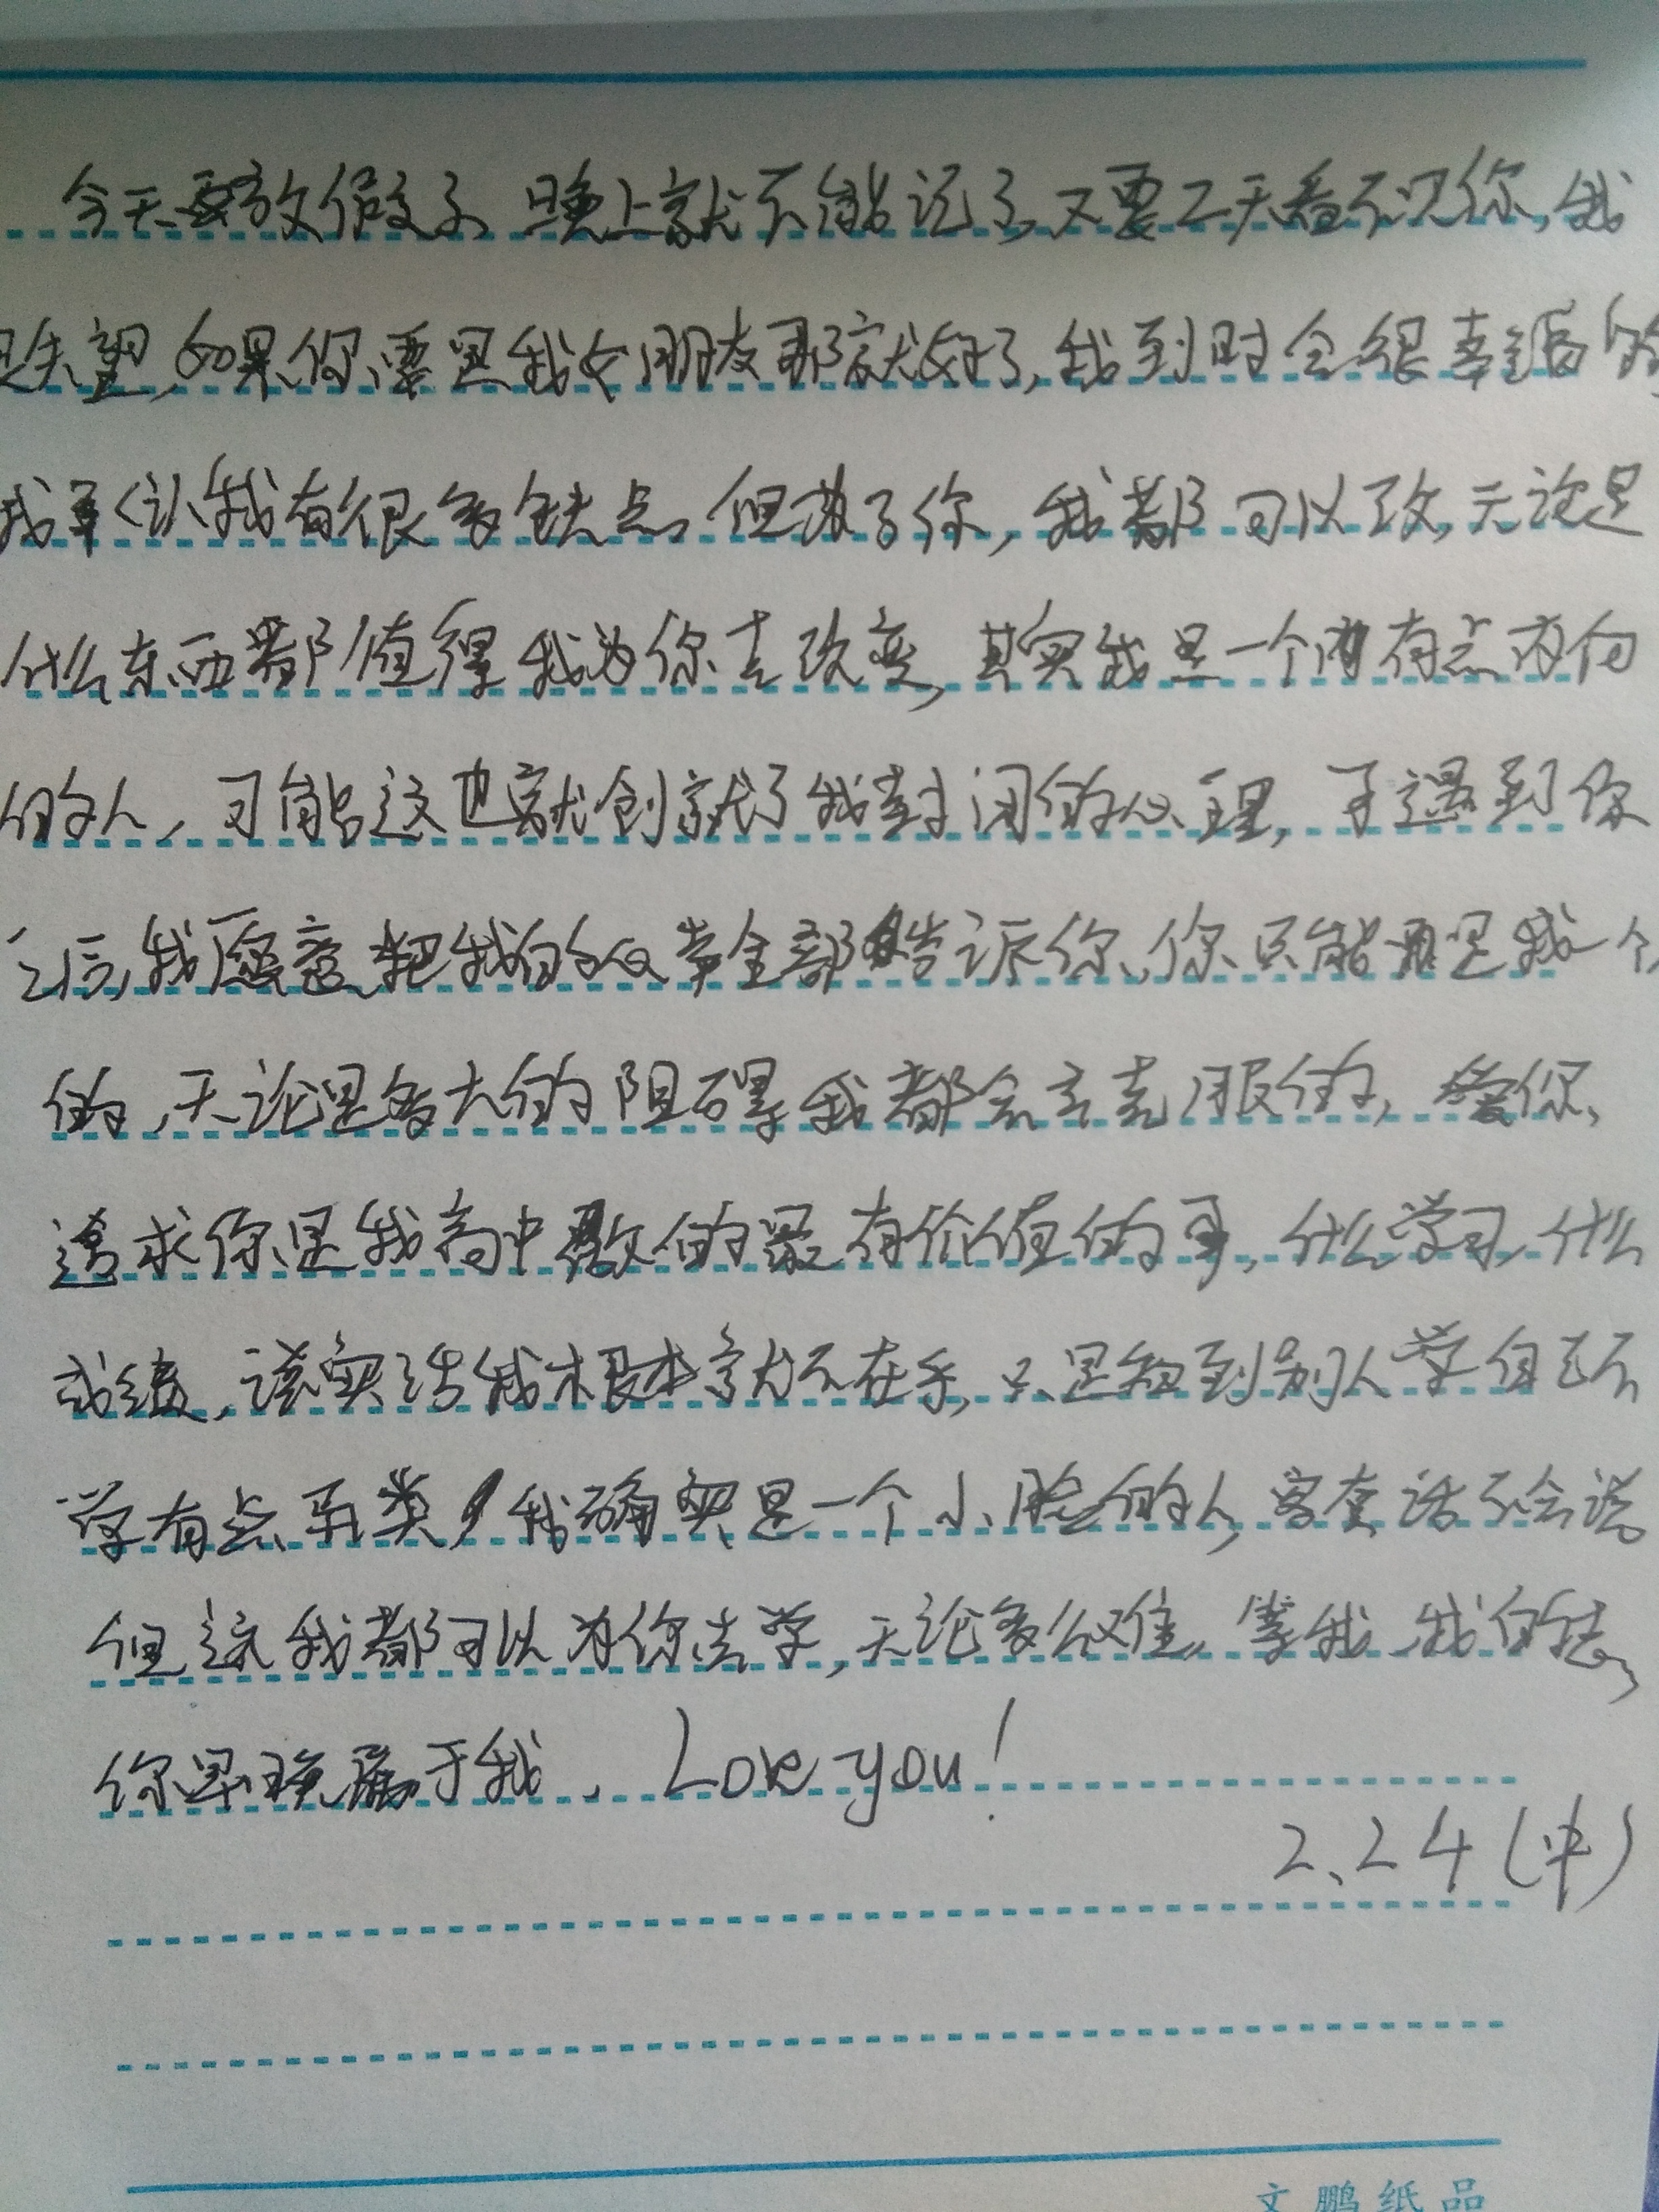 今天要放假了,晚上就不能记了,又要二天看不见你,我
失望,如果你要是我女朋友那就好了,我到时会很幸福的
我承认我有很多缺点,但为了你,我都可以改,无论是
什么东西都值得我为你去改变,其实我是一个有点内向
的人,可能这也就创就了我封闭的心理,于遇到你
之后,我愿意把我的心事全部告诉你,你只能是我一个
的,无论是多大的阻碍我都会去克服的,爱你、
追求你是我高中做的最有价值的事,什么学习,什么
成绩,说实话我根本就不在乎,只是看到别人学自己不
学有点另类,我确实是一个小胆的人,客套话不会说
但这我都可以为你去学,无论多么难,等我,我的
你早晚属于我. Love you!
2.24(中)
文鹏纸品